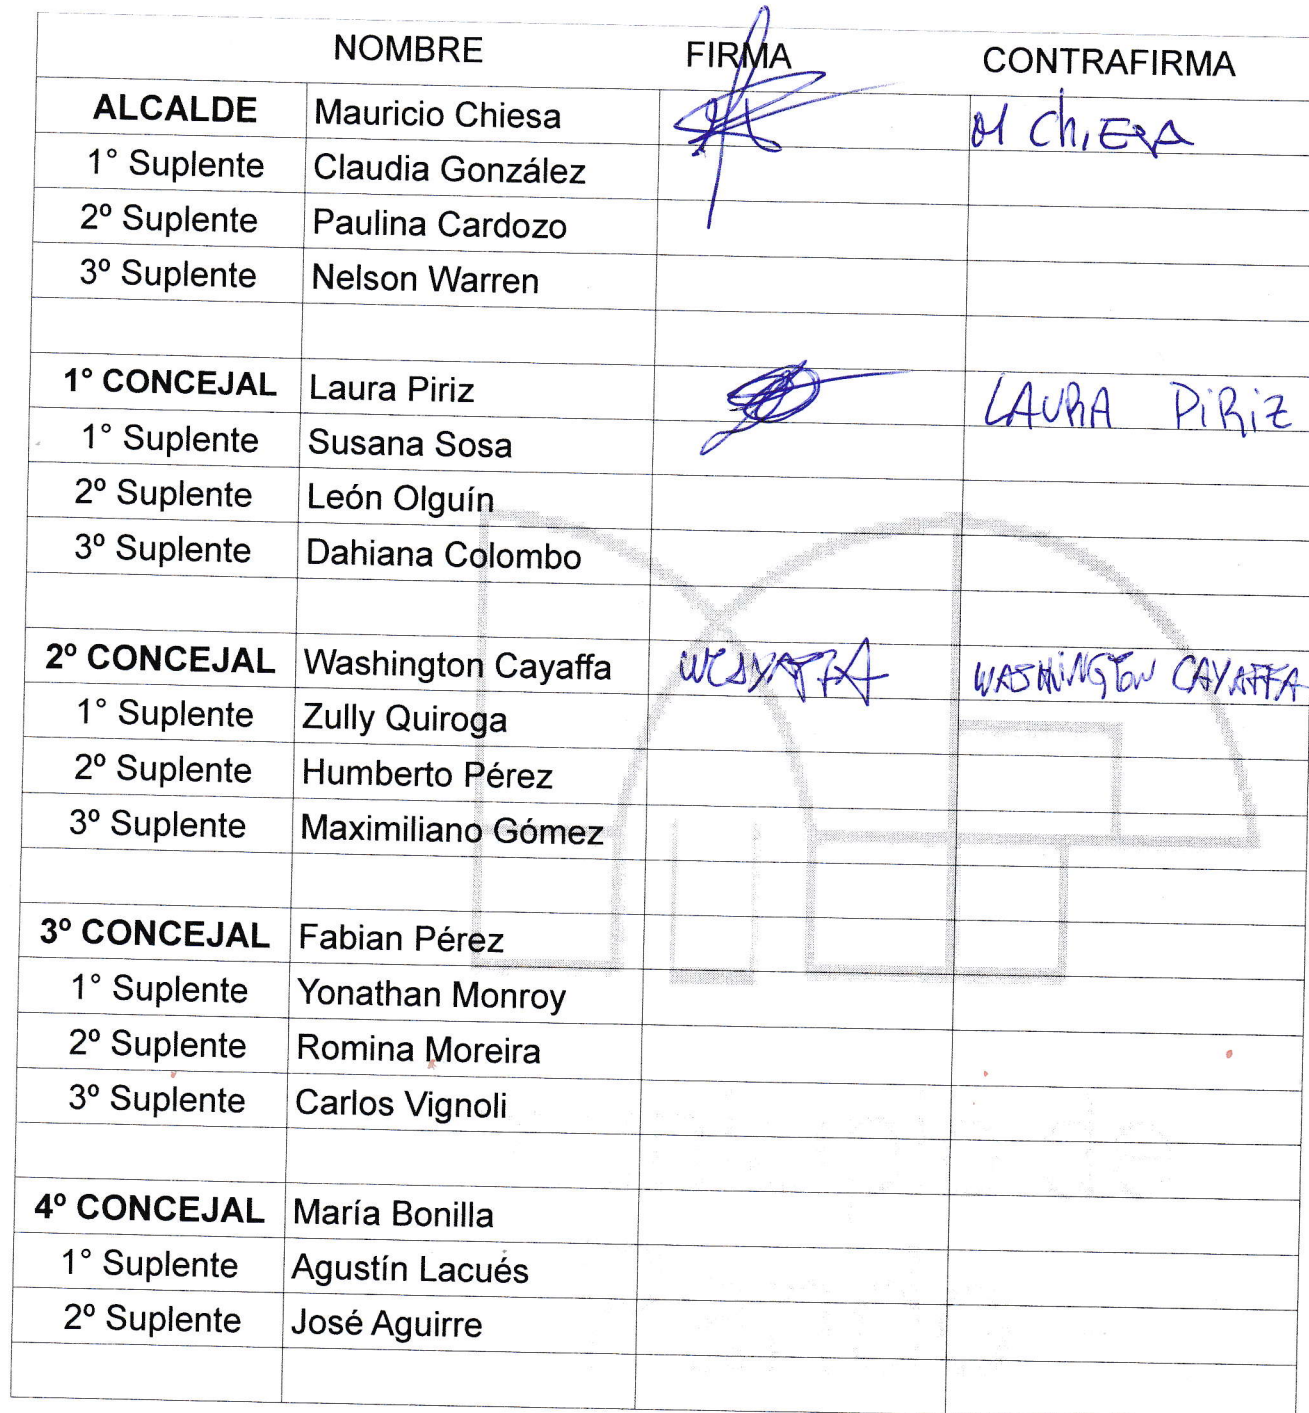 NOMBRE FIRMA CONTRAFIRMA
ALCALDE Mauricio Chiesa M ChiESA
1° Suplente Claudia González
2º Suplente Paulina Cardozo
3º Suplente Nelson Warren
1° CONCEJAL Laura Piriz LAURA PiRiZ
1° Suplente Susana Sosa
2º Suplente León Olguín
3º Suplente Dahiana Colombo
2º CONCEJAL Washington Cayaffa WCAYAFFA WASHiNGTON CAYAFFA
1° Suplente Zully Quiroga
2º Suplente Humberto Pérez
3º Suplente Maximiliano Gómez
3º CONCEJAL Fabian Pérez
1° Suplente Yonathan Monroy
2º Suplente Romina Moreira
3º Suplente Carlos Vignoli
4º CONCEJAL María Bonilla
1° Suplente Agustín Lacués
2º Suplente José Aguirre